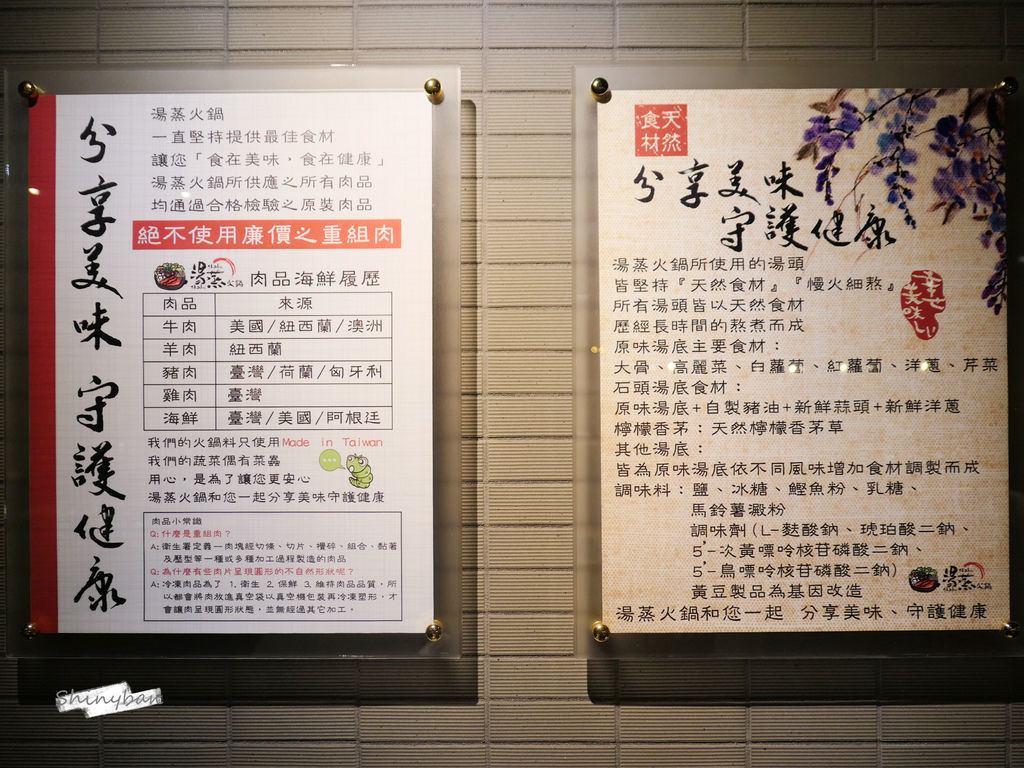 分享美味 守護健康
湯蒸火鍋
一直堅持提供最佳食材
讓您「食在美味，食在健康」
湯蒸火鍋所供應之所有肉品
均通過合格檢驗之原裝肉品
絕不使用廉價之重組肉
湯蒸火鍋 肉品海鮮履歷
肉品 來源
牛肉 美國/紐西蘭/澳洲
羊肉 紐西蘭
豬肉 臺灣/荷蘭/匈牙利
雞肉 臺灣
海鮮 臺灣/美國/阿根廷
我們的火鍋料只使用Made in Taiwan
我們的蔬菜偶有菜蟲
用心，是為了讓您更安心
湯蒸火鍋和您一起分享美味守護健康
肉品小常識
Q:什麼是重組肉？
A:衛生署定義一肉塊經切條、切片、攪碎、組合、黏著
及壓型等一種或多種加工過程製造的肉品
Q:為什麼有些肉片呈現圓形的不自然形狀呢？
A:冷凍肉品為了 1.衛生 2.保鮮 3.維持肉品品質，所
以都會將肉放進真空袋以真空機包裝再冷凍塑形，才
會讓肉呈現圓形狀態，並無經過其它加工。
天然
食材
分享美味
守護健康
湯蒸火鍋所使用的湯頭
皆堅持『天然食材』『慢火細熬』
所有湯頭皆以天然食材
歷經長時間的熬煮而成
原味湯底主要食材：
大骨、高麗菜、白蘿蔔、紅蘿蔔、洋蔥、芹菜
石頭湯底食材：
原味湯底+自製豬油+新鮮蒜頭+新鮮洋蔥
檸檬香茅：天然檸檬香茅草
其他湯底：
皆為原味湯底依不同風味增加食材調製而成
調味料：鹽、冰糖、鰹魚粉、乳糖、
馬鈴薯澱粉
調味劑(L-麩酸鈉、琥珀酸二鈉、
5'-次黃嘌呤核苷磷酸二鈉、
5'-鳥嘌呤核苷磷酸二鈉)
黃豆製品為基因改造
湯蒸火鍋
湯蒸火鍋和您一起 分享美味、守護健康
幸せ
美味しい
Shinyban